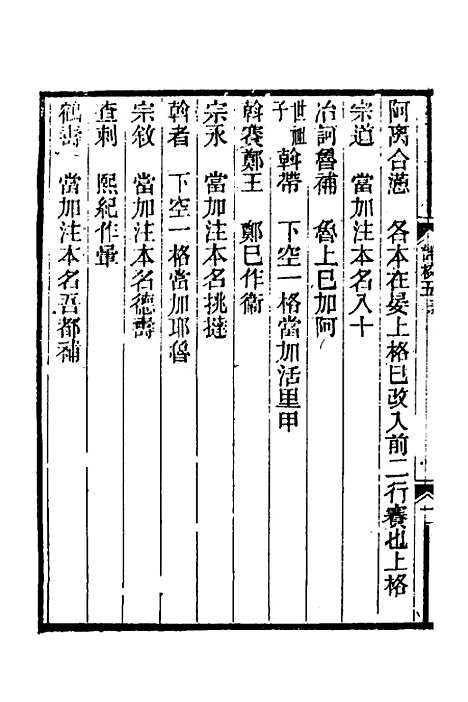 阿离合懣　各本在晏上格已改入前二行賽也上格
宗道　當加注本名八十
冶訶魯補　魯上已加阿
世祖子　斡帶　下空一格當加活里甲
斡賽鄭王　鄭已作衞
宗永　當加注本名挑撻
斡者　下空一格當加耶魯
宗敘　當加注本名德壽
查刺　熙紀作暈
鶴壽　當加注本名吾都補